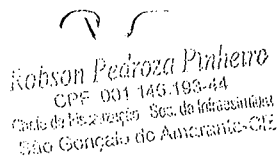 Robson Pedroza Pinheiro
CPF 001 146.193-44
Chefe de Fiscalização Sec. de Infraestrutura
São Gonçalo do Amarante-CE